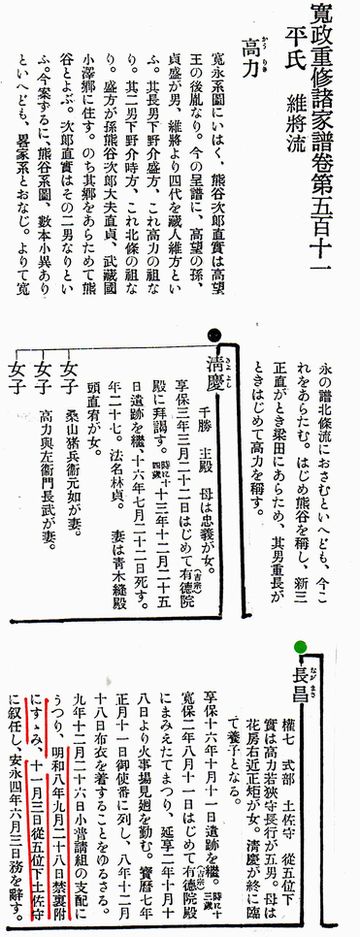 寛政重修諸家譜巻第五百十一
平氏 維將流
高力
かうりき
寛永系圖にいはく、熊谷次郎直實は高望
王の後胤なり。今の呈譜に、高望の孫、
貞盛が男、維將より四代を藏人維方とい
ふ。其長男下野介盛方、これ高力の祖な
り。其二男下野介時方、これ北條の祖な
り。盛方が孫熊谷次郎大夫直貞、武藏國
小澤郷に住す。のち其郷をあらためて熊
谷とよぶ。次郎直實はその二男なりとい
ふ。今案するに、熊谷系圖、數本小異あり
といへども、畧家系とおなじ。よりて寛
永の譜北條流におさむといへども、今こ
れをあらたむ。はじめ熊谷を稱し、新三
正直がとき梁田にあらため、其男重長が
ときはじめて高力を稱す。
淸慶
きよよし
千勝 主殿 母は忠義が女。
享保三年三月二十二日はじめて有德院
(吉宗)
殿に拜謁す。時に十四歲 十三年十二月二十五
日遺跡を繼、十六年七月二十二日死す。
年二十七。法名林貞。 妻は靑木縫殿
頭直宥が女。
女子
桑山猪兵衞元如が妻。
女子
高力與左衞門長武が妻。
女子
長昌
ながまさ
權七 式部 土佐守 從五位下
實は高力若狹守長行が五男。母は
花房右近正矩が女。淸慶が終に臨
て養子となる。
享保十六年十月十一日遺跡を繼。時に十三歲
寛保二年八月十一日はじめて有德院殿
(吉宗)
にまみえたてまつり、延享二年十月十
八日より火事場見廻を勤む。寶曆七年
正月十一日御使番に列し、八年十二月
十八日布衣を着することをゆるさる。
九年十二月二十六日小普請組の支配に
うつり、明和八年九月二十八日禁裏附
にすゝみ、十一月三日從五位下土佐守
に敍任し、安永四年六月三日務を辭す。